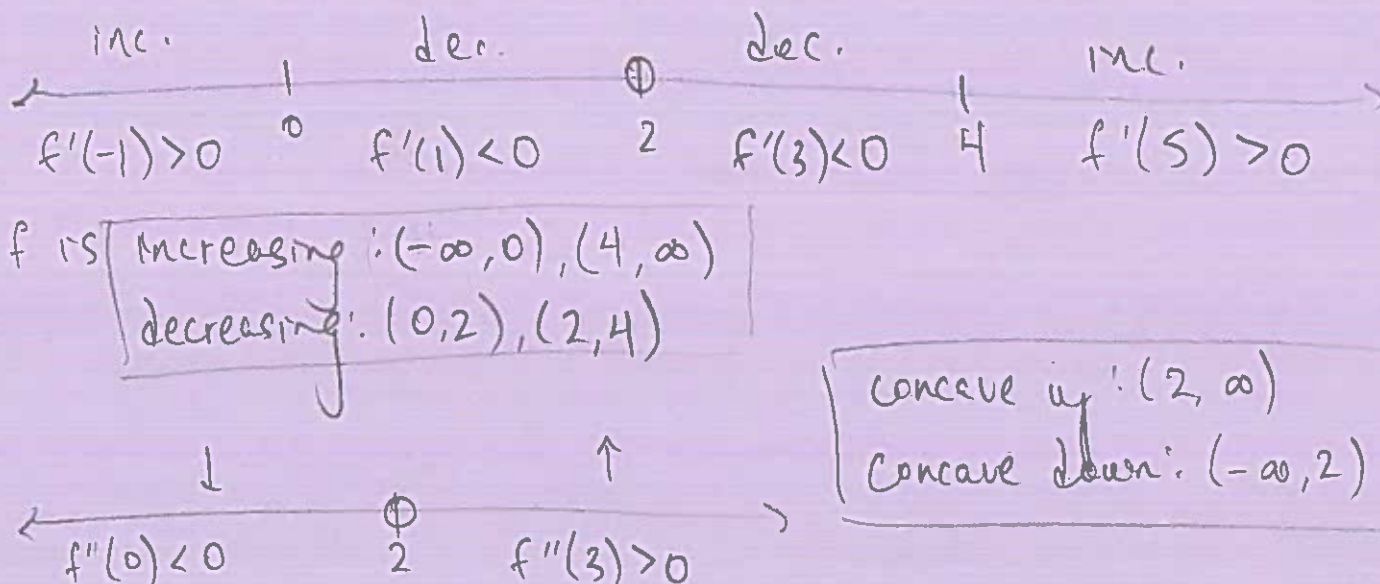 inc. dec. dec. inc.
0 2 4
f'(-1)>0 f'(1)<0 f'(3)<0 f'(5)>0
f is increasing: (-∞,0), (4,∞)
decreasing: (0,2), (2,4)
concave up: (2,∞)
concave down: (-∞,2)
↓ ↑
f''(0)<0 2 f''(3)>0